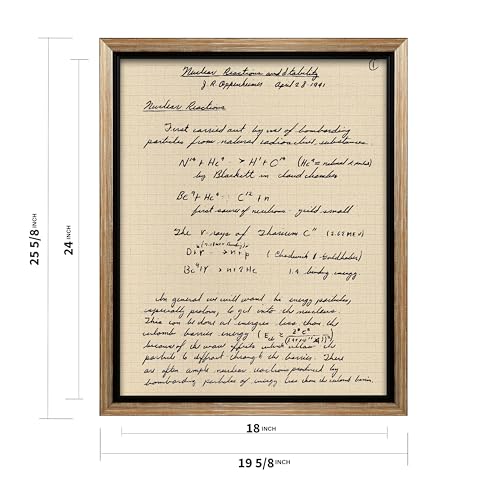 ①
Nuclear Reactions and Stability
J. R. Oppenheimer April 28 1941
Nuclear Reactions
First carried out by use of bombarding
particles from natural radioactive substances.
N¹⁴ + He⁴ → H¹ + O¹⁷ (He⁴ = natural α
by Blackett in cloud chamber
Be⁹ + He⁴ : C¹² + n
first source of neutrons - yield small
The γ rays of Thorium C" (2.62 MEV)
D + γ → n + p (Chadwick & Goldhaber)
Be⁹ + γ → n + 2 He 1.4 binding energy.
In general we will want the energy particles,
especially protons, to get into the nucleus.
This can be done at energies less than the
coulomb barrier energy
because of the wave effects which allow the
particle to diffract through the barrier. There
are often ample nuclear reactions produced by
bombarding particles of energy less than the coulomb barrier.
25 5/8 INCH
24 INCH
18 INCH
19 5/8 INCH